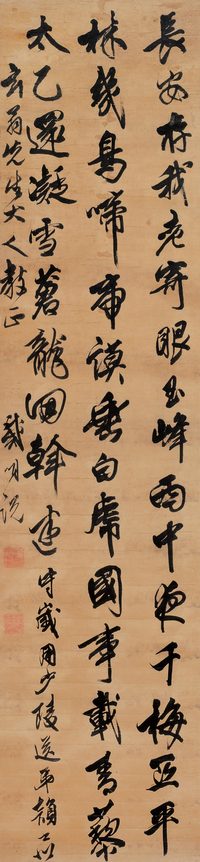 長安存我老寄眼玉峰西中夜千梅亞平
林幾鳥啼帝謨垂白虎國事載青藜
太乙還凝雪蒼龍回斡遲 時歲用少陵送韋韻
玄翁先生大人教正 戴明說